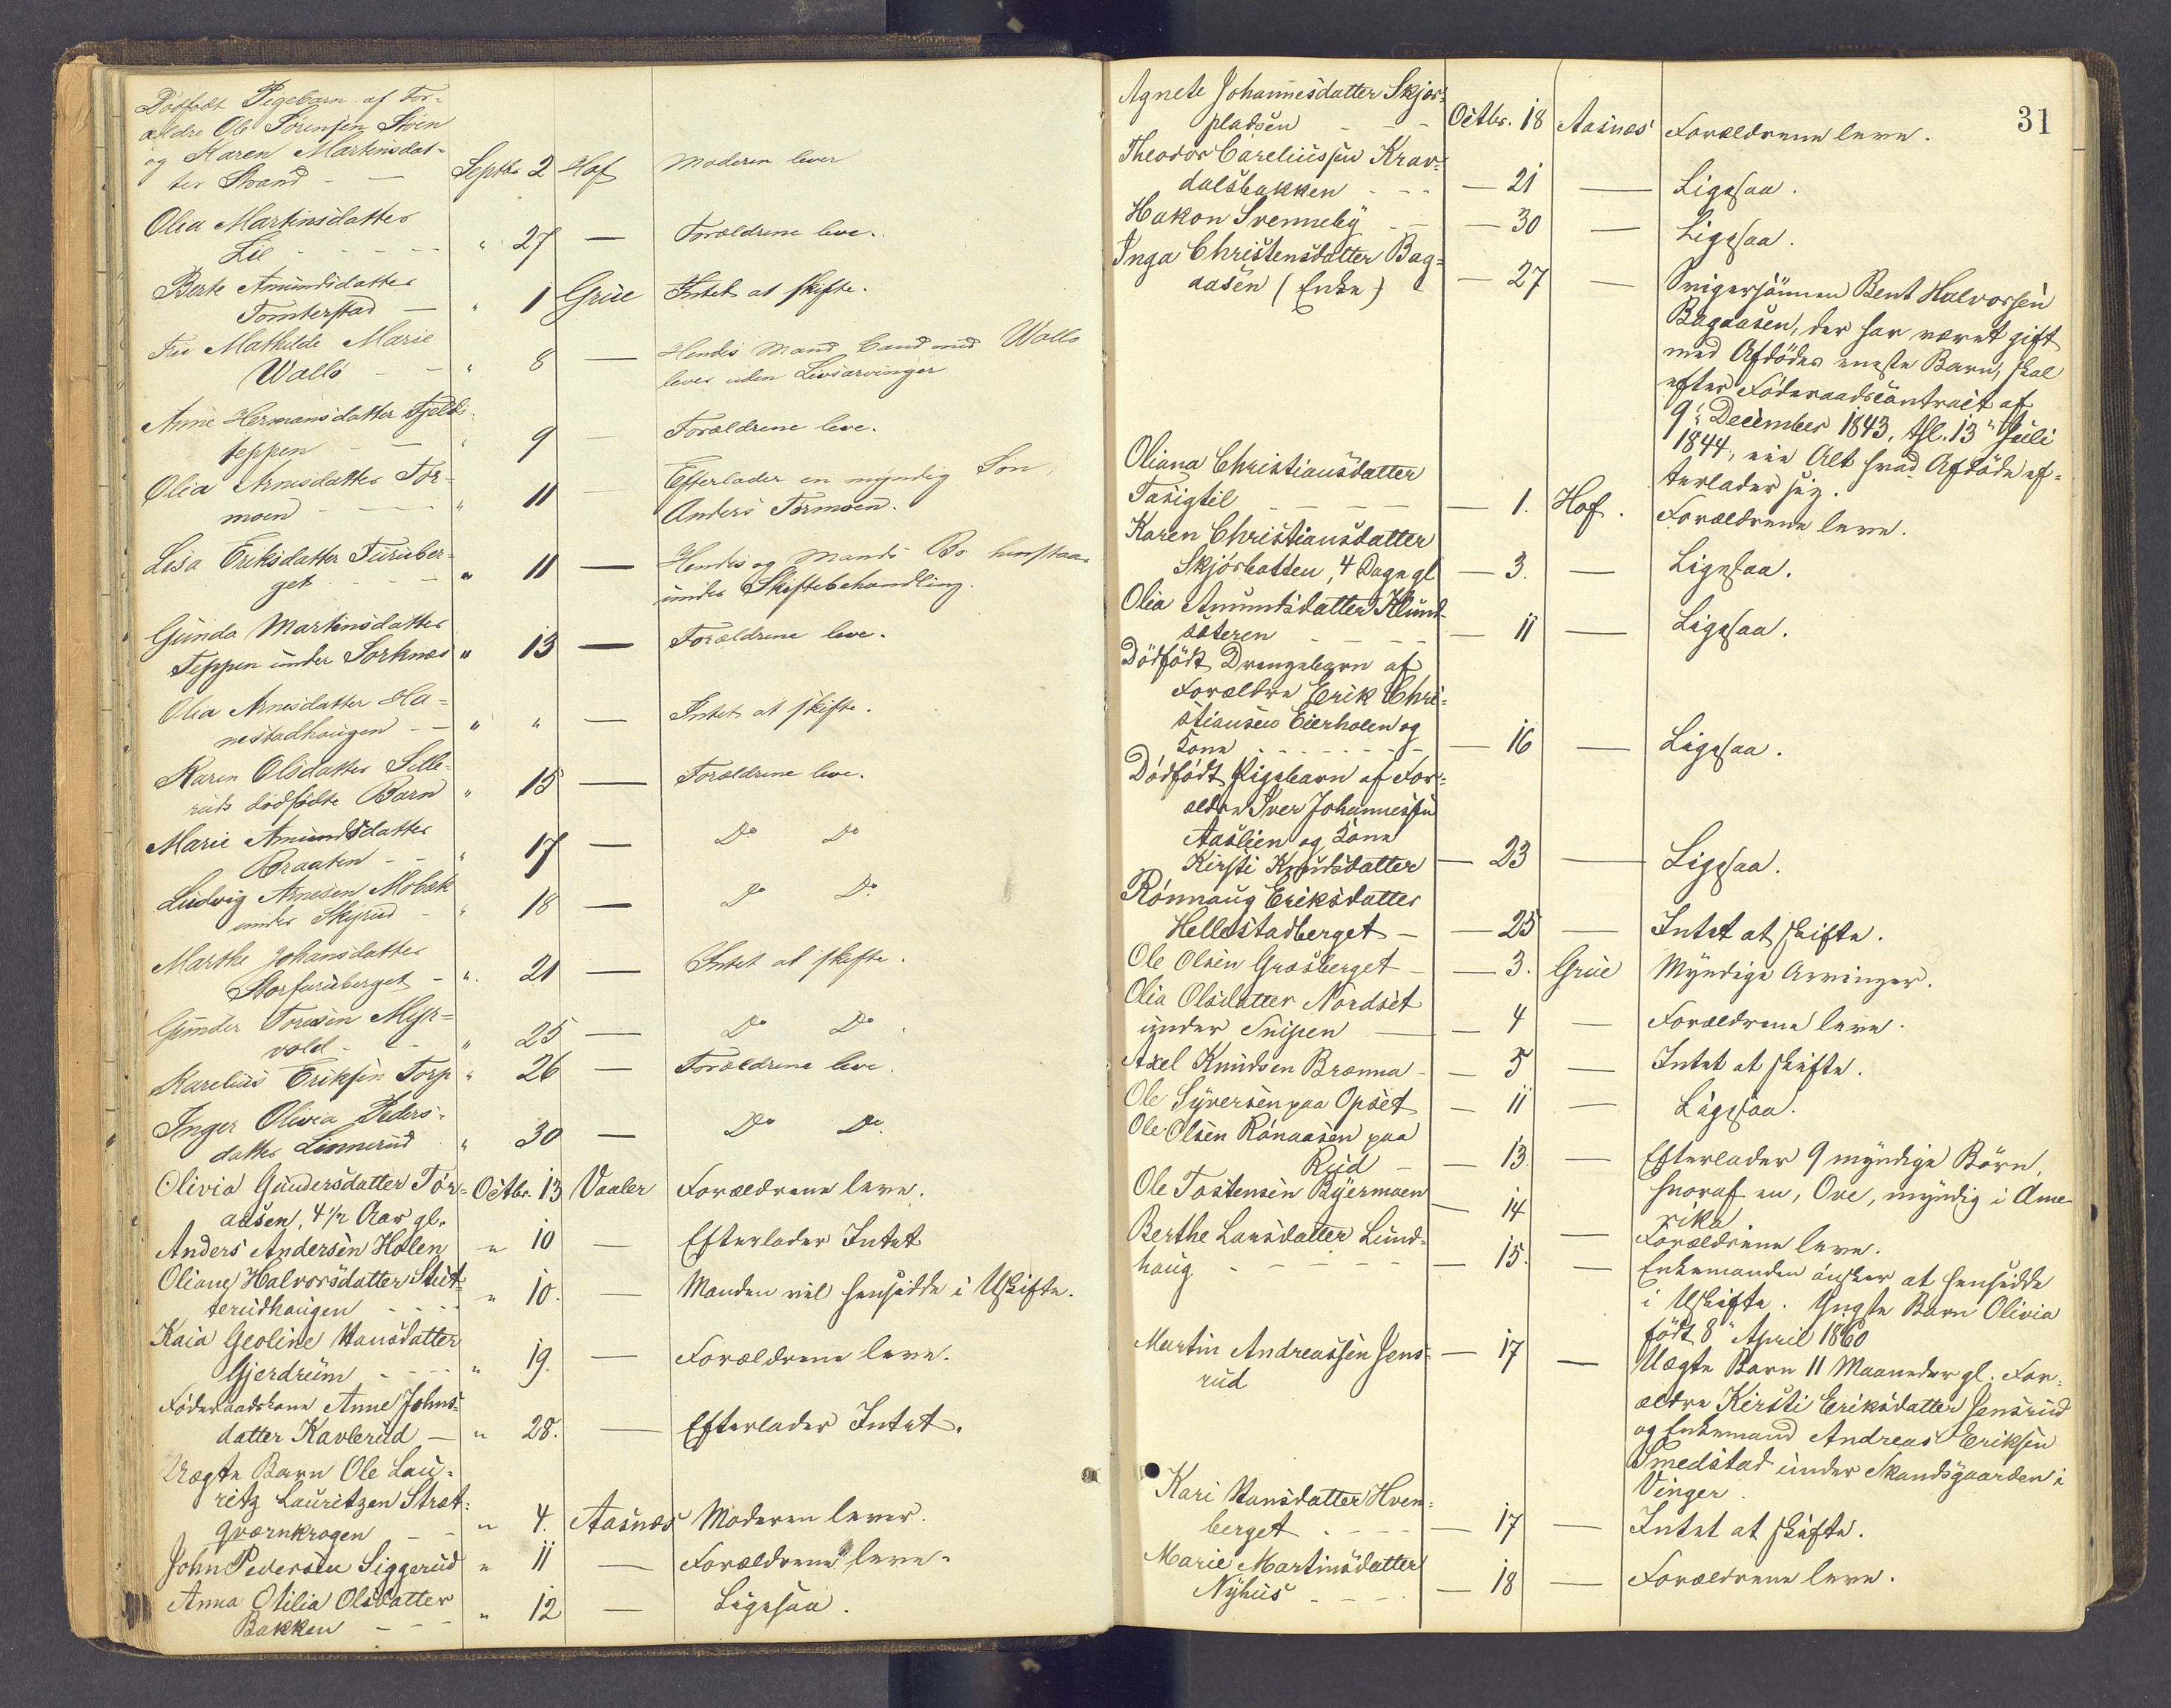 Dödfödt Pigebarn af For-
ældre Ole Sörensen Støen
og Karen Martinsdat-
ter Strand - — Septbr 2 Hof Moderen lever
Olia Martinsdatter
Lie - - - - - " 27 — Forældrene leve.
Berte Amundsdatter
Tomterstad — " 1 Grue Intet at skifte.
Fru Mathilde Marie
Wallö - - " 8 — Hendes Mand Cand med Wallö
lever uden Livsarvinger
Anne Hermansdatter Fjeld-
teppen - — " 9 — Forældrene leve.
Olia Arnesdatter Tor-
moen - — " 11 — Efterlader en myndig Sön,
Anders Tormoen.
Lisa Eriksdatter Furuber-
get - - - " 11 — Hendes og Mands Bo henstaar
under Skiftebehandling.
Gunda Martinsdatter
Teppen under Sorknæs " 13 — Forældrene leve.
Olia Arnesdatter Ha-
nestadhaugen - — " " — Intet at skifte.
Karen Olsdatter Sille-
ruds dödfödte Barn " 15 — Forældrene leve.
Marie Amundsdatter
Braaten - - " 17 — Do Do
Ludvig Arnesen Möbæk
under Skyrud - " 18 — Do Do
Marthe Johansdatter
Storfuruberget - " 21 — Intet at skifte.
Gunder Toresen Myr-
vold - - - " 25 — Do Do.
Karelius Eriksen Torp " 26 — Forældrene leve.
Inger Olivia Peders-
datter Linnerud " 30 — Do Do.
Olivia Gundersdatter Tör- Octbr. 13 Vaaler Forældrene leve.
aasen, 4 1/2 Aar gl.
Anders Andersen Holen " 10 — Efterlader Intet
Oliane Halvorsdatter Stut-
terudhaugen - - - - " 10. — Manden vil hensidde i Uskifte.
Kaia Geoline Hansdatter
Gjerdrum - - - - " 19. — Forældrene leve.
Föderaadskone Anne Johns-
datter Kavlerud — " 28. — Efterlader Intet.
Uægte Barn Ole Lau-
ritz Lauritzen Stræt-
qværnkrogen - - " 4. Aasnæs Moderen lever.
John Pedersen Siggerud " 11 — Forældrene leve.
Anna Otilia Olsdatter
Bakken - - - " 12 — Ligesaa.
31
Agnete Johannesdatter Skjør-
pladsen - - - Octbr. 18 Aasnæs Forældrene leve.
Theodor Careliussen Krav-
dalsbakken - - - — 21 — Ligesaa.
Hakon Svenneby - - — 30 — Ligesaa.
Inga Christensdatter Bag-
aasen (Enke) — 27 — Svigersönnen Bent Halvorsen
Bagaasen, der har været gift
med Afdödes eneste Barn, skal
efter Föderaadscontract af
9" December 1843, thl. 13" Juli
1844, eie Alt hvad Afdöde ef-
terlader sig.
Oliana Christiansdatter
Tasigtil - - - - — 1. Hof. Forældrene leve.
Karen Christiansdatter
Skjörbatten, 4 Dage gl — 3. — Ligesaa.
Olia Amundsdatter Klund-
sæteren - - - - — 11 — Ligesaa.
Dödfödt Drengebarn af
Forældre Erik Chri-
stiansen Eierholen og
Kone - - - - - - — 16 — Ligesaa.
Dödfödt Pigebarn af For-
ældre Iver Johannessen
Aaslien og Kone
Kirsti Knudsdatter — 23 — Ligesaa.
Rönnaug Eriksdatter
Hellestadberget — — 25 — Intet at skifte.
Ole Olsen Grasberget - — 3. Grue Myndige Arvinger.
Olia Olsdatter Nordset
under Snipen — — 4 — Forældrene leve.
Axel Knudsen Brænna - — 5 — Intet at skifte.
Ole Syversen paa Opset — 11 — Ligesaa.
Ole Olsen Rönaasen paa
Rud - — 13. — Efterlader 9 myndige Börn,
hvoraf en, Ove, myndig i Ame-
rika
Ole Tostensen Byermoen — 14 — Forældrene leve.
Berthe Larsdatter Lund-
haug - - - - - — 15. — Enkemanden önsker at hensidde
i Uskifte. Yngste Barn Olivia
födt 8" April 1860
Martin Andreassen Jens-
rud — 17 — Uægte Barn 11 Maaneder gl. For-
ældre Kirsti Eriksdatter Jensrud
og Enkemand Andreas Eriksen
Smedstad under Skandsgaarden i
Vinger.
Kari Hansdatter Hven-
berget - - - - — 17 — Intet at skifte.
Marie Martinsdatter
Nyhus - - - - — 18 — Forældrene leve.